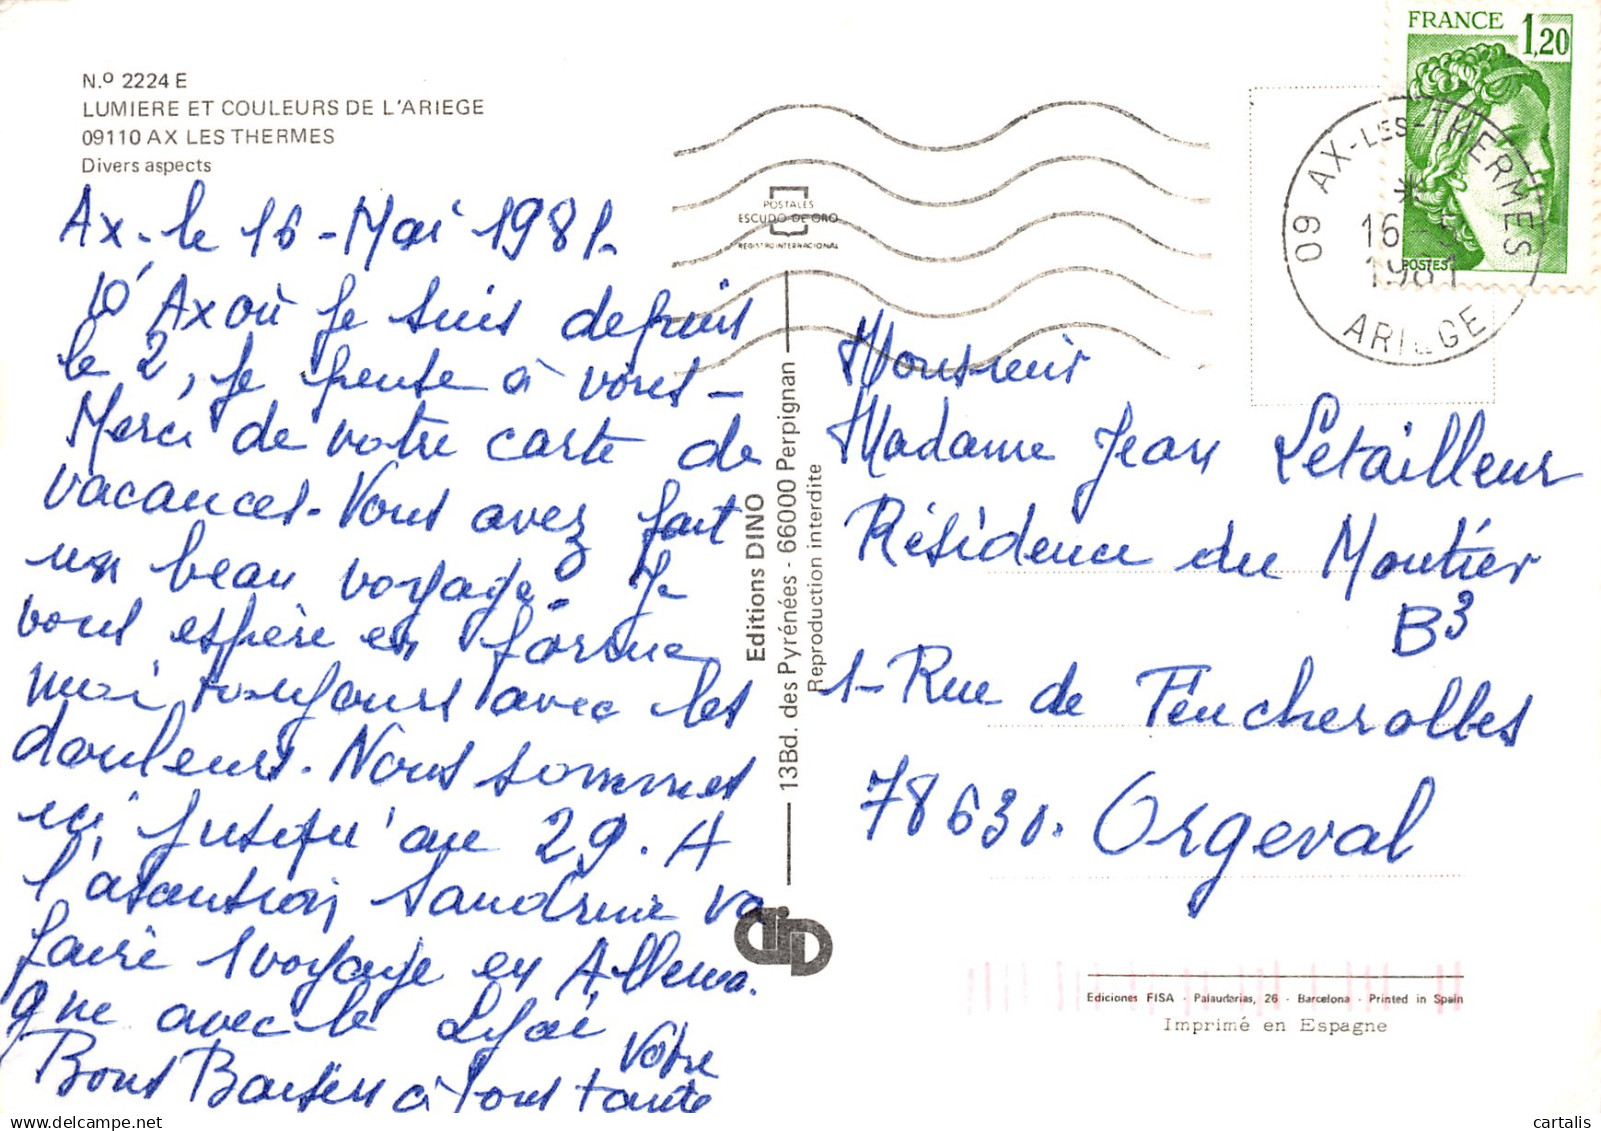 N.º 2224 E
LUMIERE ET COULEURS DE L'ARIEGE
09110 AX LES THERMES
Divers aspects
Ax. le 16 - Mai 1981 -
D'Ax où je suis depuis
le 2, je pense à vous -
Merci de votre carte de
vacances. Vous avez fait
un beau voyage. Je
vous espère en forme
moi toujours avec les
douleurs. Nous sommes
ici jusqu'au 29. A
l'ascension Sandrine va
faire 1 voyage en Allema.
gne avec le Lycé
Bons Baisers à tous Votre
tante
POSTALES
ESCUDO DE ORO
REGISTRO INTERNACIONAL
Editions DINO
13Bd. des Pyrénées - 66000 Perpignan
Reproduction interdite
FRANCE 1,20
POSTES
09 AX-LES-THERMES
16 -5
1981
ARIEGE
Monsieur
Madame Jean Letailleur
Résidence du Moutier
B3
1 - Rue de Feucherolles
78630. Orgeval
Ediciones FISA - Palaudarias, 26 - Barcelona - Printed in Spain
Imprimé en Espagne
cartalis